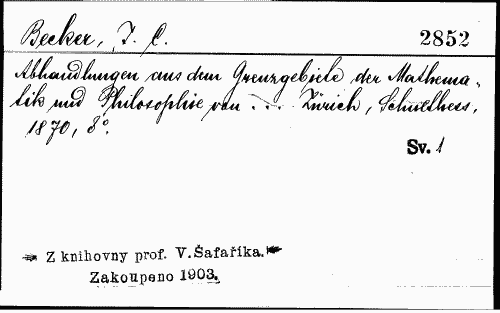 Becker, J. C. 2852
Abhandlungen aus dem Grenzgebiete der Mathema-
tik und Philosophie von ... Zürich, Schulthess,
1870, 8°.
Sv. 1
Z knihovny prof. V. Šafaříka.
Zakoupeno 1903.